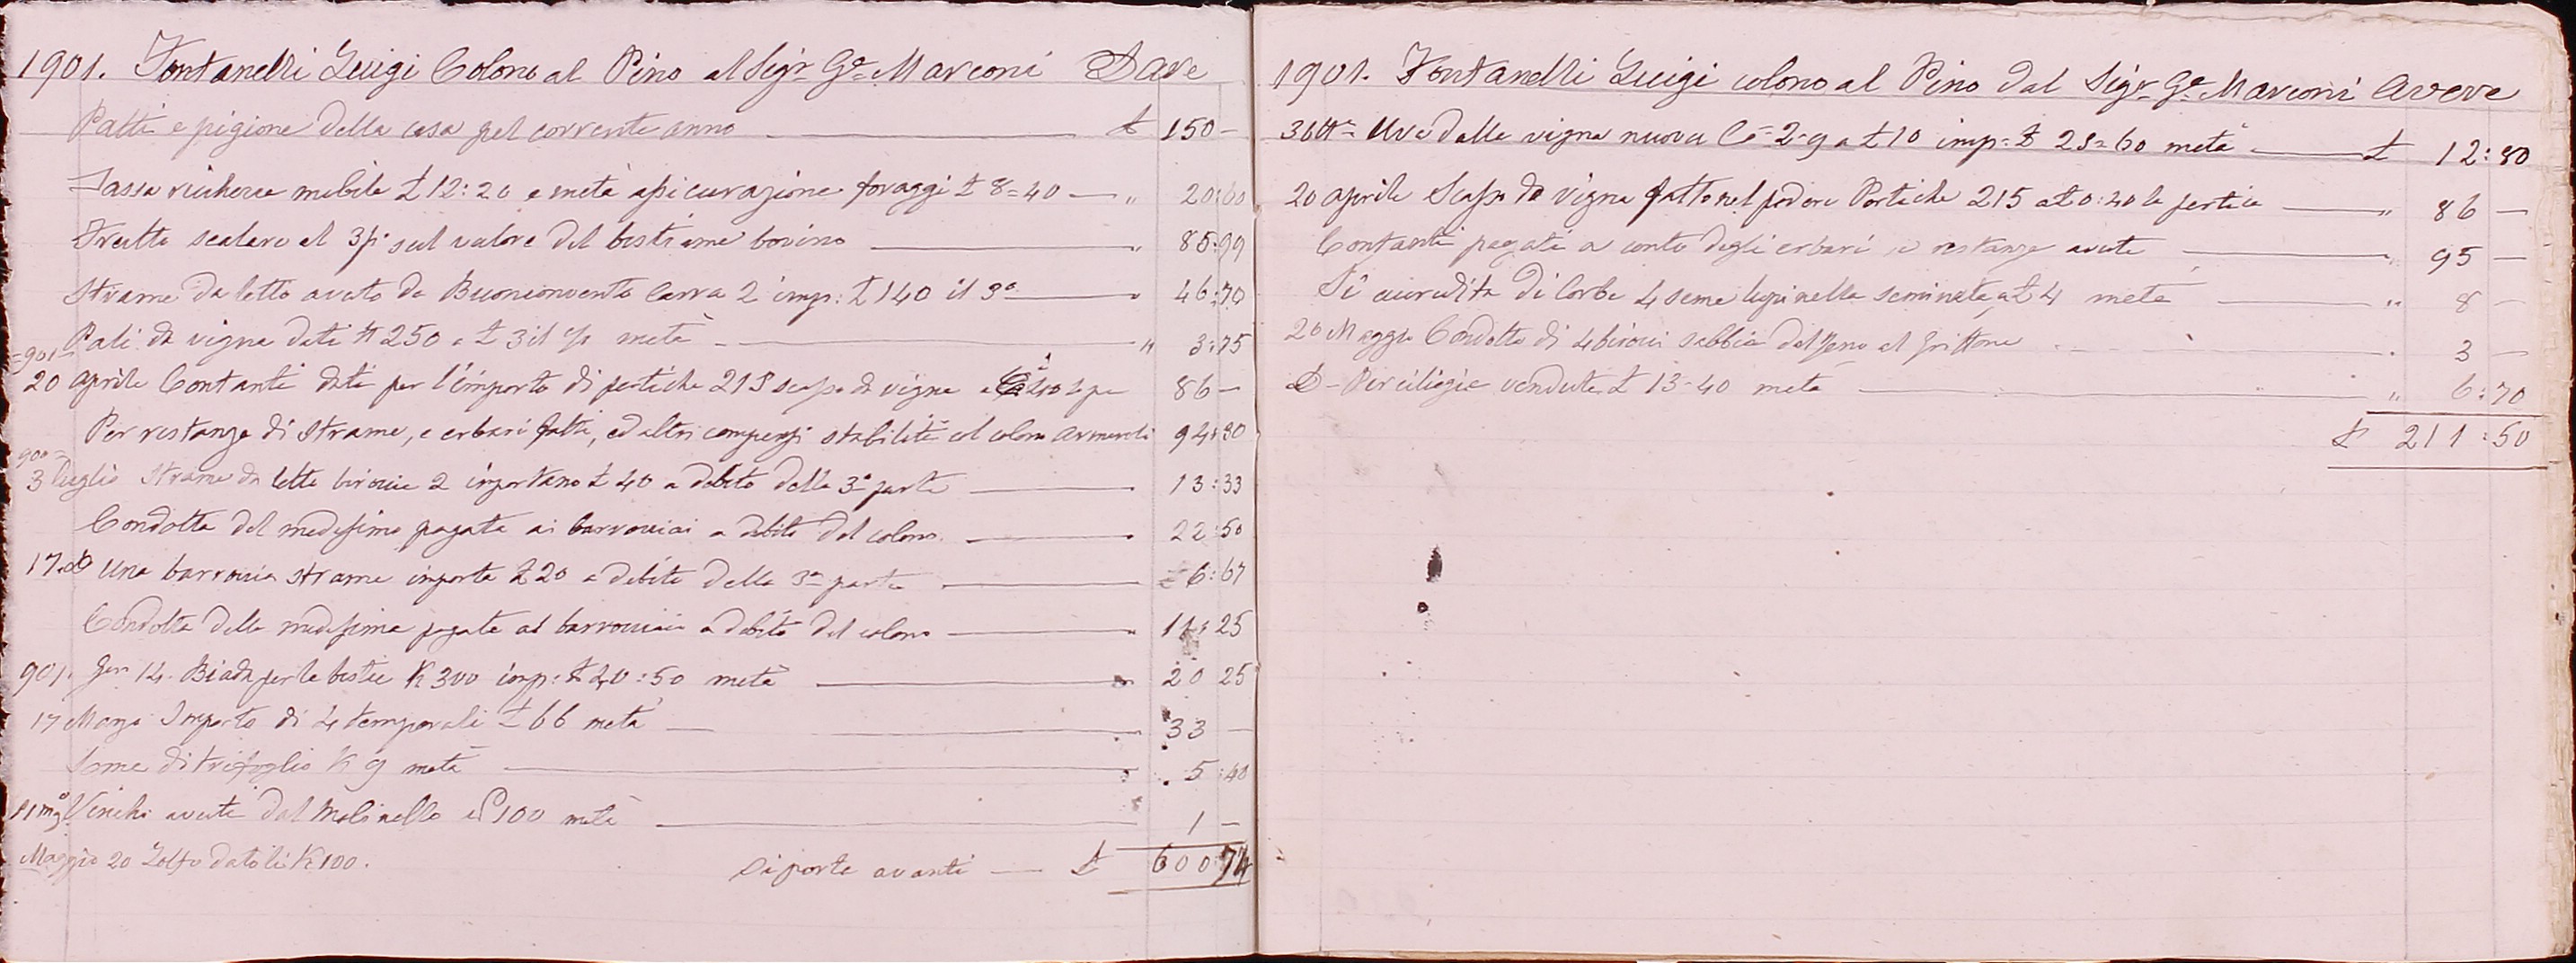 1901. Fontanelli Luigi Colono al Pino al Sigr Ge Marconi Dare
Patti e pigione della casa pel corrente anno £ 150 —
Tassa richezze mobile £ 12:20 e metà assicurazione foraggi £ 8=40 — " 20:60
Frutto scalare al 3p% sul valore del bestiame bovino " 85:99
Strame da letto avuto da Buonconvento Carra 2 imp: £ 140 il 3o " 46:70
=901= Pali da vigna dati N 250 a £ 3 il % metà " 3:75
20 aprile Contanti dati per l'importo di pertiche 215 scasso da vigna 86 —
Per restanza di strame, e erbari fatti, ed altri compensi stabiliti col colono 94:30
900=
3 luglio Strame da letto birocie 2 importano £ 40 a debito della 3a parte 13:33
Condotta del medesimo pagata ai barrociai a debito del colono 22:50
17. do Una barrocia strame importa £ 20 a debito della 3a parte 6:67
Condotta della medesima pagata al barrociaio a debito del colono 11:25
901. Gen 14. Biada per le bestie K 300 imp: £ 40:50 metà 20 25
17 Marzo Importo di 4 temporali £ 66 metà 33 —
Seme di trifoglio K 9 metà 5:40
Vinchi avuti dal Molinello 100 metà 1 —
Maggio 20 Zolfo datoli K 100.
Si porta avanti — £ 600:74
1901. Fontanelli Luigi colono al Pino dal Sigr Ge Marconi Avere
Uva dalla vigna nuova Ce = 2=9 a £ 10 imp= £ 25=60 metà £ 12:80
20 aprile Scasso da vigna fatto nel podere Pertiche 215 a £ 0:40 la pertica " 86 —
Contanti pagati a conto degli erbari e restanze avute " 95 —
Si accredita di Corbe 4 seme lupinella seminata, a £ 4 metà " 8 —
20 Maggio Condotta di 4 biroci sabbia dal Reno al Griffone 3 —
D — Per ciliegie vendute £ 13=40 metà " 6:70
£ 211:50